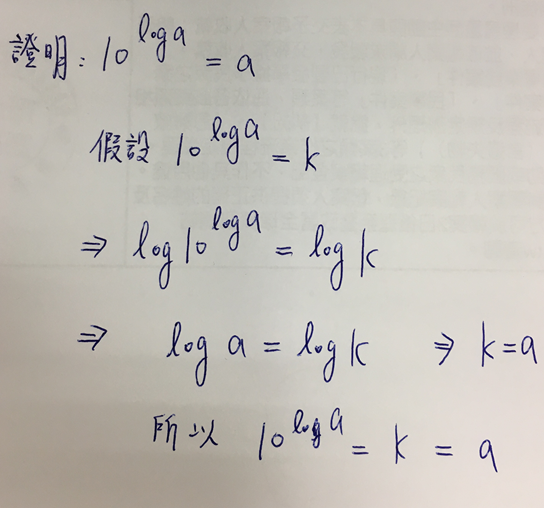 證明：10^log a = a
假設 10^log a = k
⇒ log 10^log a = log k
⇒ log a = log k ⇒ k = a
所以 10^log a = k = a